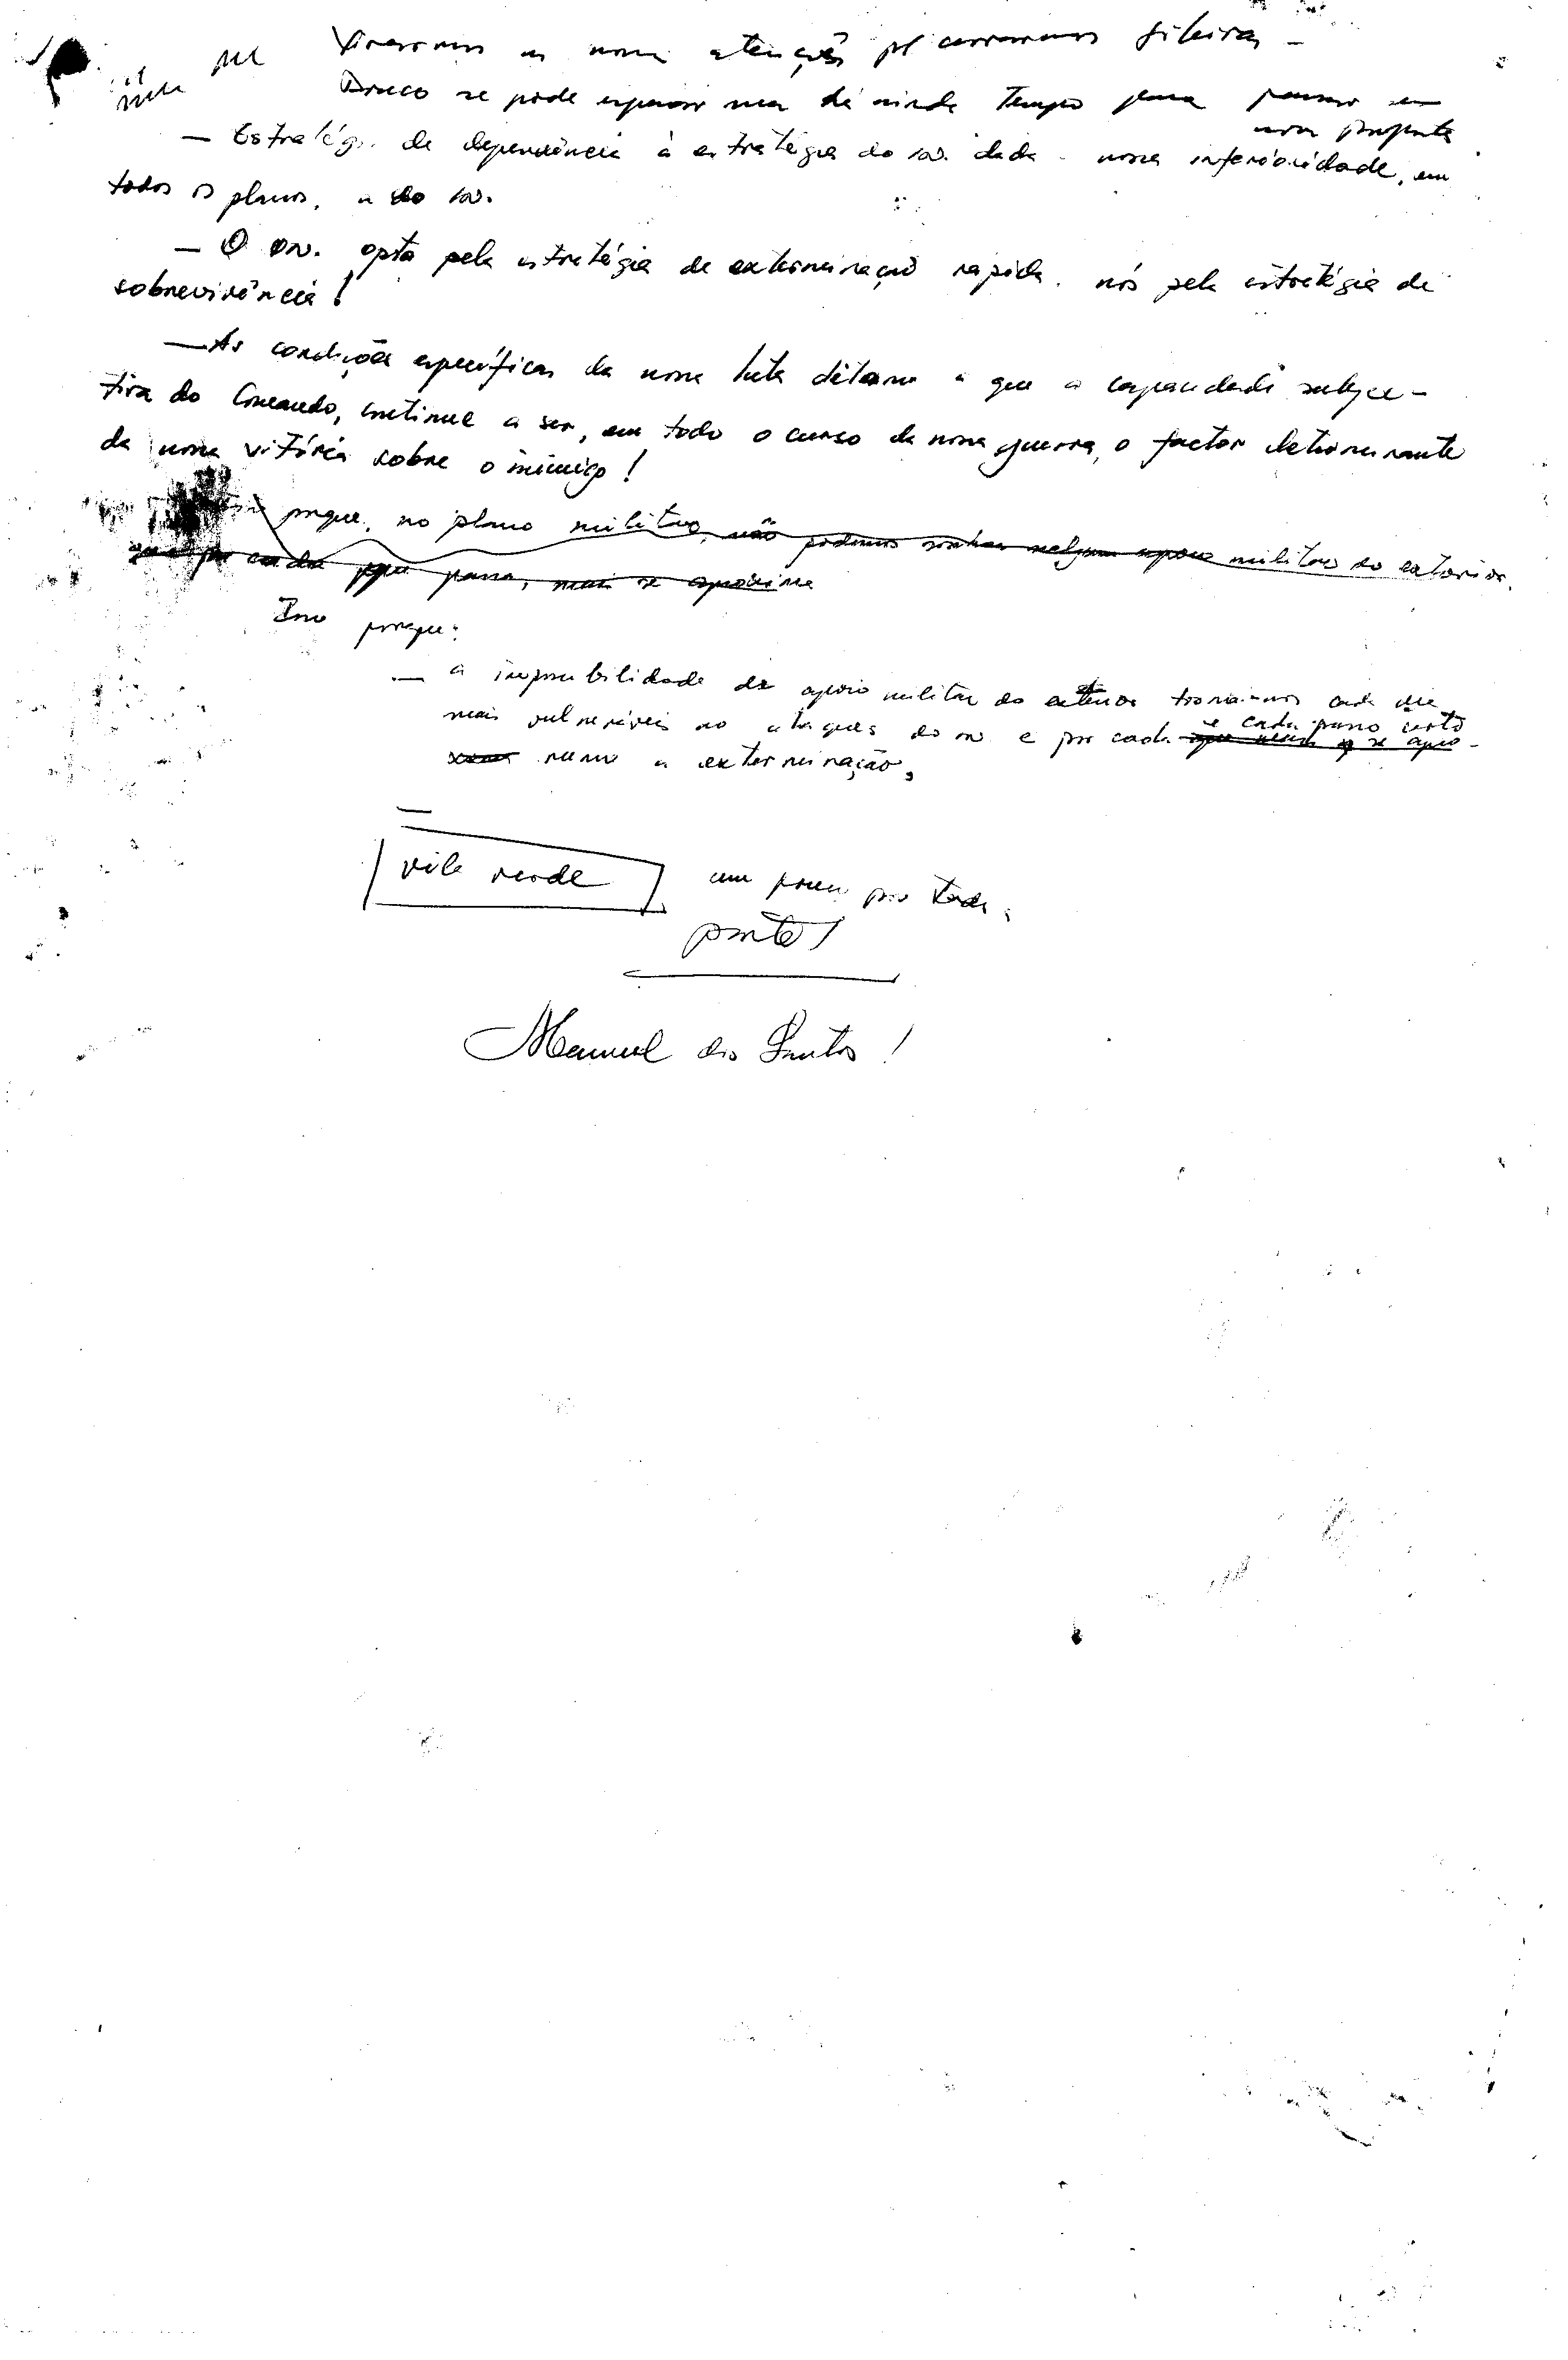 Viraremos as nossas atenções p/ cerrarmos fileiras -
Pouco se pode esperar de ainda tempo para pensar em
uma proposta
- Estratég. de dependência à estratégia do in. dada a nossa inferioridade, em
todos os planos, a do in.
- O in. opta pela estratégia de exterminação rápida. nós pela estratégia de
sobrevivência!
- As condições específicas da nossa luta ditaram a que a capacidade subjec-
tiva do Comando, continue a ser, em todo o curso da nossa guerra, o factor determinante
da nossa vitória sobre o inimigo!
porque, no plano militar, não podemos sonhar nalgum apoio militar do exterior.
por cada que passa, mais se aproxima
Isso porque:
- a impossibilidade de apoio militar do exterior torna-nos cada dia
mais vulneráveis ao ataques do in. e por cada
é cada passo certo
rumo a exterminação.
Vila verde um pouco por toda
parte!
Manuel dos Santos!